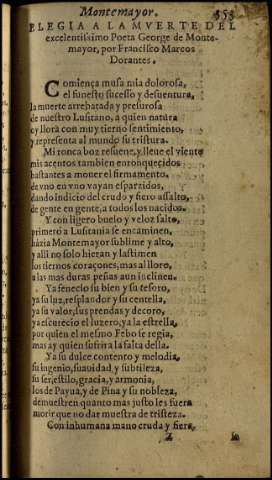 Montemayor. 353
ELEGIA A LA MVERTE DEL
excelentissimo Poeta George de Monte-
mayor, por Francisco Marcos
Dorantes.
Comiença musa mia dolorosa,
el funesto sucesso y desuentura,
la muerte arrebatada y presurosa
de nuestro Lusitano, a quien natura
oy llora con muy tierno sentimiento,
y representa al mundo su tristura.
Mi ronca boz resuene, y llene el viento
mis acentos tambien enronquecidos
bastantes a mouer el firmamento,
de vno en vno vayan esparzidos,
dando indicio del crudo y fiero assalto,
de gente en gente, a todos los nacidos.
Y con ligero buelo y veloz salto,
primero a Lusitania se encaminen,
házia Montemayor sublime y alto,
y alli no solo hieran y lastimen
los tiernos coraçones, mas al lloro,
a las mas duras peñas aun inclinen.
Ya fenecio su bien y su tesoro,
ya su luz, resplandor y su centella,
ya su valor, sus prendas y decoro,
ya escurecio el luzero, ya la estrella,
por quien el mesmo Febo se regia,
mas ay quien sufrira la falta della.
Ya su dulce contento y melodia,
su ingenio, suauidad, y subtileza,
su ser, estilo, gracia, y armonia,
los de Payua, y de Pina y su nobleza,
demuestren quanto mas justo les fuera
morir que no dar muestra de tristeza.
Con inhumana mano cruda y fiera,
Z la